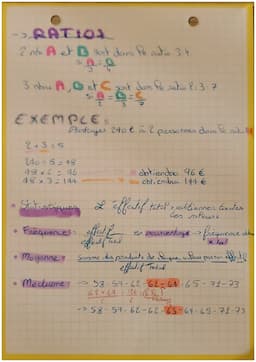 -> RATIOS
2 nbs A et B sont dans le ratio 3:4
si A/3 = B/4
3 nbs A, B et C sont dans le ratio 2:3:7
si A/2 = B/3 = C/7
EXEMPLE:
Partager 240 € à 2 personnes dans le ratio
2 + 3 = 5
240 ÷ 5 = 48
48 x 2 = 96 obtiendra 96 €
48 x 3 = 144 obtiendra 144 €
Statistiques L'effectif total: additionner toutes les valeurs
Fréquence: effectif / effectif total en pourcentage -> fréquence x 100
Moyenne: Somme des produits de chaque valeur par effectif / effectif total
Médiane: -> 58-59-62-62-64-65-71-73
-> 58-59-62-62-65-64-65-71-73